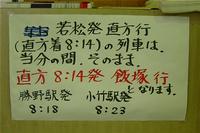 若松発 直方行
(直方着8:14)の列車は、
当分の間、そのまま、
直方8:14発 飯塚行
となります。
勝野駅発 小竹駅発
8:18 8:23